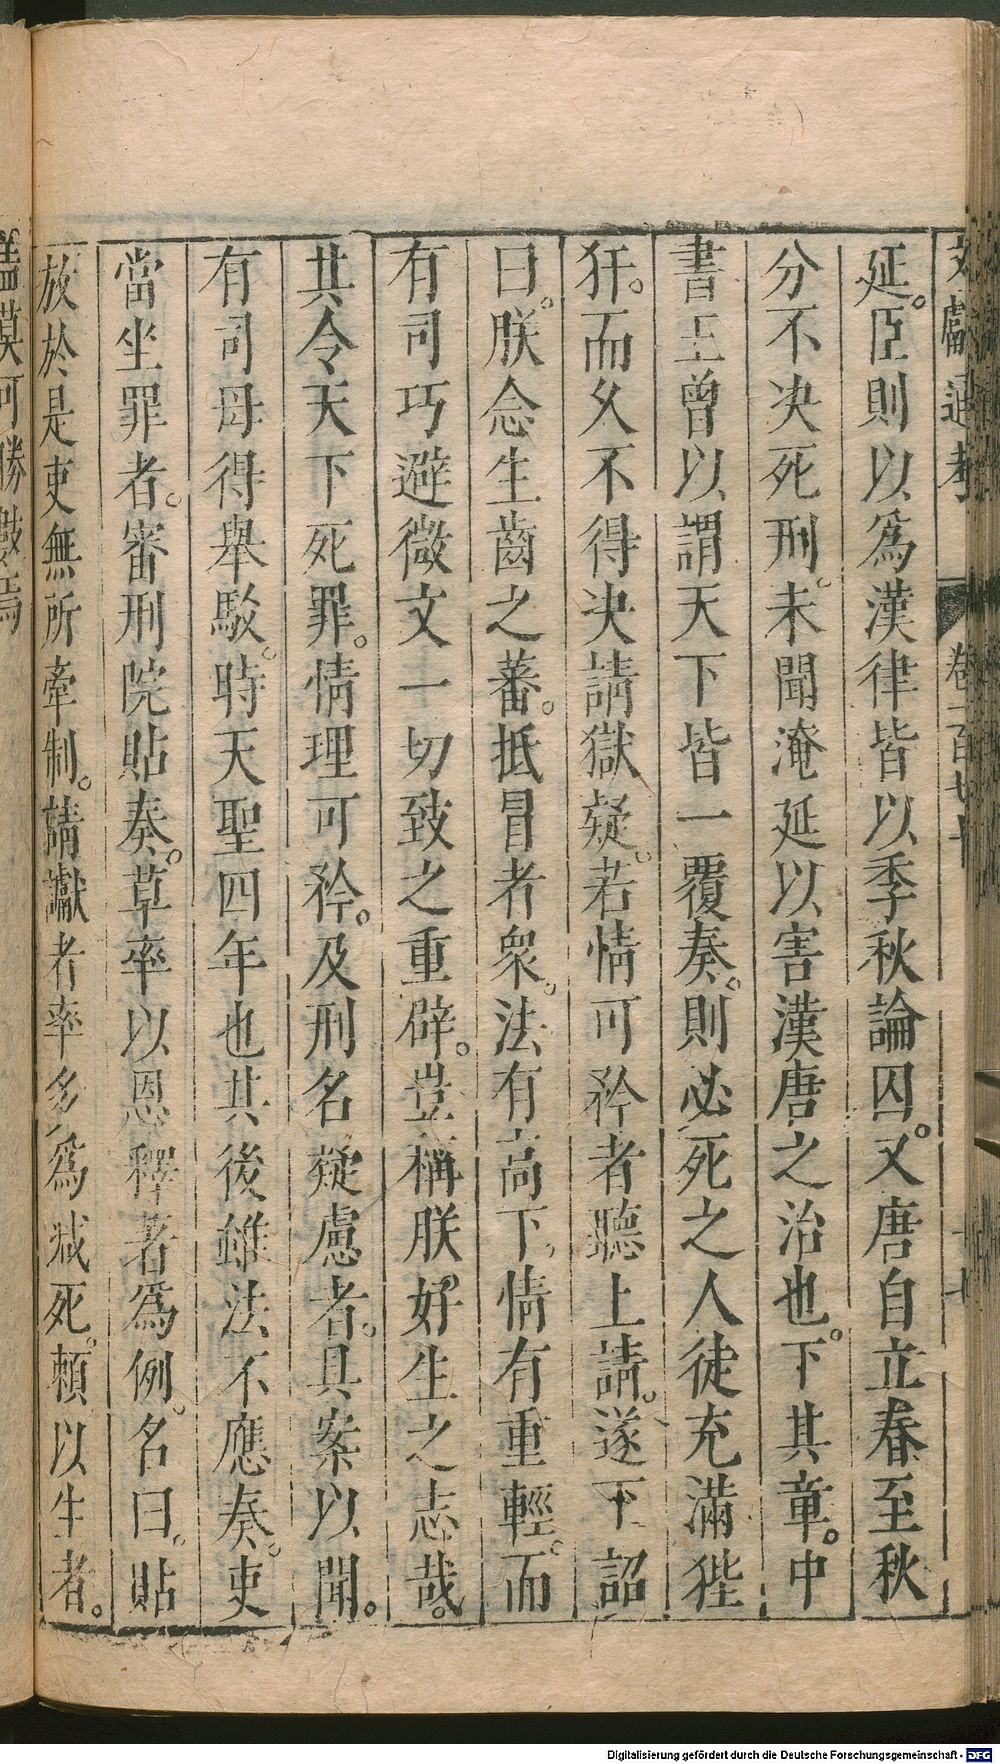 文獻通考 卷一百七十
延。臣則以爲漢律皆以季秋論囚。又唐自立春至秋
分不决死刑。未聞淹延以害漢唐之治也。下其章。中
書王曾以謂天下皆一覆奏。則必死之人徒充滿狴
犴。而久不得決請獄疑。若情可矜者聽上請。遂下詔
曰。朕念生齒之蕃。抵冒者衆。法有高下。情有重輕。而
有司巧避微文一切致之重辟。豈稱朕好生之志哉。
其令天下死罪。情理可矜。及刑名疑慮者。具案以聞。
有司毋得舉駁。時天聖四年也其後雖法不應奏。吏
當坐罪者。審刑院貼奏。草率以恩釋著爲例。名曰。貼
放於是吏無所牽制。請讞者率多爲减死。頼以生者。
蓋莫可勝數焉
Digitalisierung gefördert durch die Deutsche Forschungsgemeinschaft - DFG